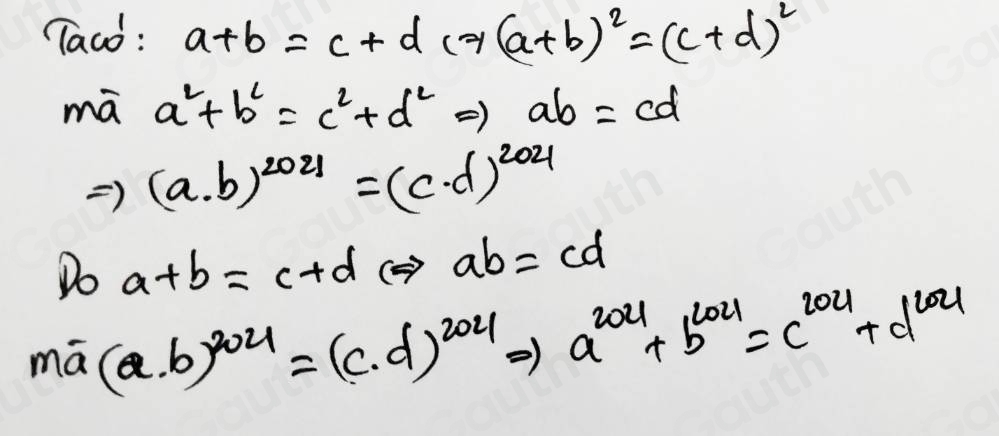 Ta có: a+b = c+d <=> (a+b)² = (c+d)²
mã a²+b² = c²+d² => ab = cd
=> (a.b)²⁰²¹ = (c.d)²⁰²¹
Do a+b = c+d <=> ab = cd
mã (a.b)²⁰²¹ = (c.d)²⁰²¹ => a²⁰²¹ + b²⁰²¹ = c²⁰²¹ + d²⁰²¹